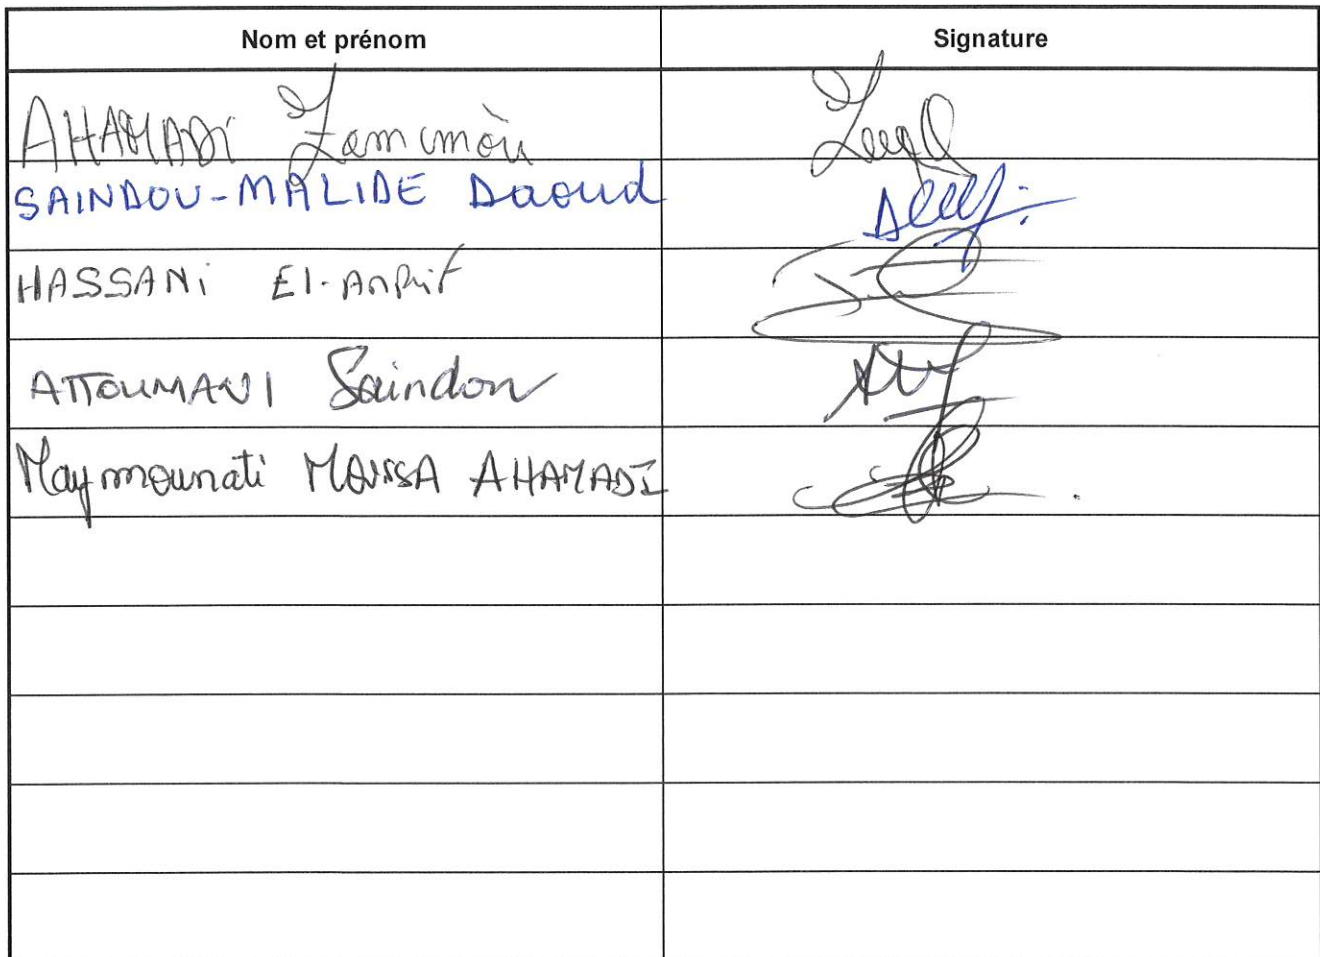 Nom et prénom Signature
AHAMADI
SAINDOU-MALIDE Daoud
HASSANi El-Anrif
ATTOUMANI Saindou
Maymounati MOUSSA AHAMADI